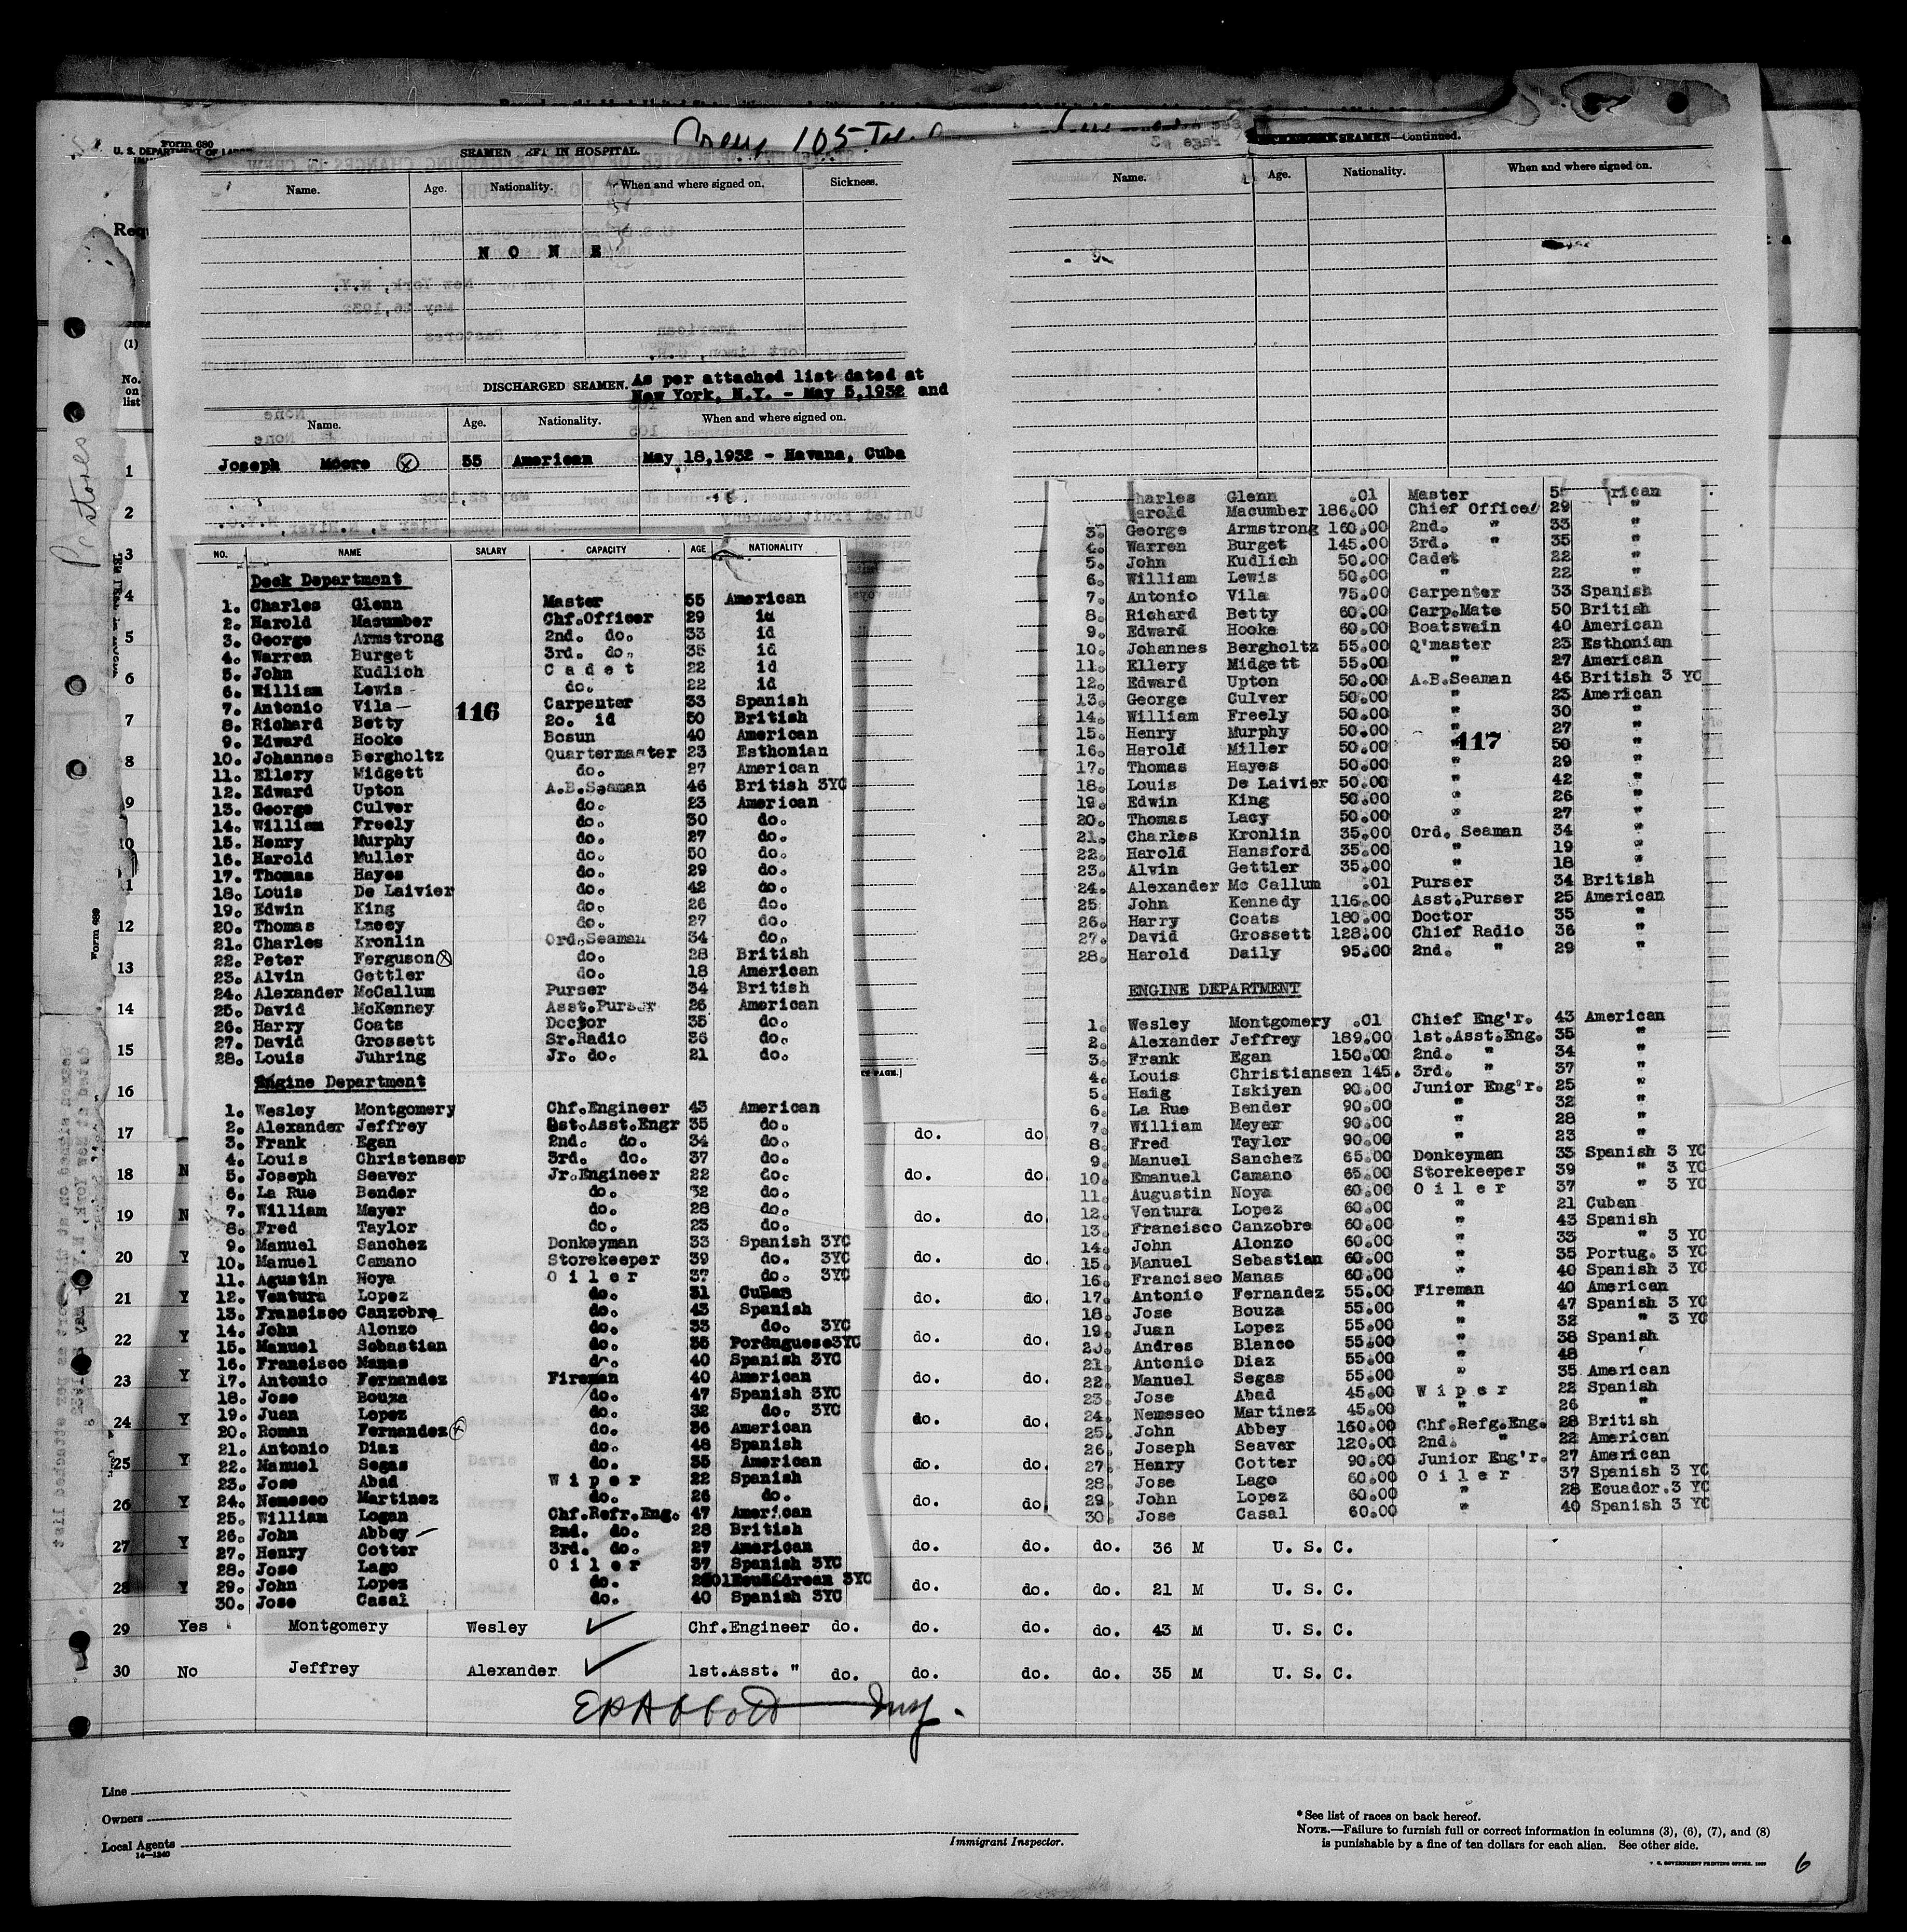 Form 680
U. S. DEPARTMENT OF LABOR
Crew 105
SEAMEN LEFT IN HOSPITAL.
Name. Age. Nationality. When and where signed on. Sickness.
N O N E
DISCHARGED SEAMEN. As per attached list dated at
New York, N.Y. - May 5,1932 and
Name. Age. Nationality. When and where signed on.
Joseph Moore 55 American May 18,1932 - Havana, Cuba
NO. NAME SALARY CAPACITY AGE NATIONALITY
Deck Department
1. Charles Glenn Master 55 American
2. Harold Macumber Chf.Officer 29 id
3. George Armstrong 2nd. do. 33 id
4. Warren Burget 3rd. do. 35 id
5. John Kudlich C a d e t 22 id
6. William Lewis do. 22 id
7. Antonio Vila Carpenter 33 Spanish
116
8. Richard Betty 2o. id 50 British
9. Edward Hooke Bosun 40 American
10. Johannes Bergholtz Quartermaster 23 Esthonian
11. Ellery Midgett do. 27 American
12. Edward Upton A.B.Seaman 46 British 3YC
13. George Culver do. 23 American
14. William Freely do. 30 do.
15. Henry Murphy do. 27 do.
16. Harold Muller do. 50 do.
17. Thomas Hayes do. 29 do.
18. Louis De Laivier do. 42 do.
19. Edwin King do. 26 do.
20. Thomas Lacey do. 27 do.
21. Charles Kronlin Ord.Seaman 34 do.
22. Peter Ferguson do. 28 British
23. Alvin Gettler do. 18 American
24. Alexander McCallum Purser 34 British
25. David McKenney Asst.Purser 26 American
26. Harry Coats Doctor 35 do.
27. David Grossett Sr.Radio 36 do.
28. Louis Juhring Jr. do. 21 do.
Engine Department
1. Wesley Montgomery Chf.Engineer 43 American
2. Alexander Jeffrey 1st.Asst.Engr 35 do.
3. Frank Egan 2nd. do. 34 do.
4. Louis Christenser 3rd. do. 37 do.
5. Joseph Seaver Jr.Engineer 22 do.
6. La Rue Bender do. 32 do.
7. William Mayer do. 28 do.
8. Fred Taylor do. 23 do.
9. Manuel Sanchez Donkeyman 33 Spanish 3YC
10. Manuel Camano Storekeeper 39 do. 3YC
11. Agustin Noya O i l e r 37 do. 3YC
12. Ventura Lopez do. 31 Cuban
13. Francisco Canzobre do. 43 Spanish
14. John Alonzo do. 33 do. 3YC
15. Manuel Sebastian do. 35 Portuguese3YC
16. Francisco Manas do. 40 Spanish 3YC
17. Antonio Fernandez Fireman 40 American
18. Jose Bouza do. 47 Spanish 3YC
19. Juan Lopez do. 32 do. 3YC
20. Roman Fernandez do. 36 American
21. Antonio Diaz do. 48 Spanish
22. Manuel Segas do. 35 American
23. Jose Abad W i p e r 22 Spanish
24. Nemeseo Martinez do. 26 do.
25. William Logan Chf.Refr.Eng. 47 American
26. John Abbey 2nd. do. 28 British
27. Henry Cotter 3rd. do. 27 American
28. Jose Lago O i l e r 37 Spanish 3YC
29. John Lopez do. 3YC
30. Jose Casal do. 40 Spanish 3YC
SEAMEN—Continued.
Name. Age. Nationality. When and where signed on.
harles Glenn .01 Master 5 rican
arold Macumber 186.00 Chief Office 29 "
3. George Armstrong 160.00 2nd. " 33 "
4. Warren Burget 145.00 3rd. " 35 "
5. John Kudlich 50.00 Cadet 22 "
6. William Lewis 50.00 " 22 "
7. Antonio Vila 75.00 Carpenter 33 Spanish
8. Richard Betty 60.00 Carp.Mate 50 British
9. Edward Hooke 60.00 Boatswain 40 American
10. Johannes Bergholtz 55.00 Q'master 23 Esthonian
11. Ellery Midgett 55.00 " 27 American
12. Edward Upton 50.00 A.B.Seaman 46 British 3 YC
13. George Culver 50.00 " 23 American
14. William Freely 50.00 " 30 "
15. Henry Murphy 50.00 " 27 "
117
16. Harold Miller 50.00 50 "
17. Thomas Hayes 50.00 " 29 "
18. Louis De Laivier 50.00 " 42 "
19. Edwin King 50.00 " 26 "
20. Thomas Lacy 50.00 " 27 "
21. Charles Kronlin 35.00 Ord. Seaman 34 "
22. Harold Hansford 35.00 " 19 "
23. Alvin Gettler 35.00 " 18 "
24. Alexander Mc Callum .01 Purser 34 British
25 John Kennedy 116.00 Asst.Purser 25 American
26. Harry Coats 180.00 Doctor 35 "
27. David Grossett 128.00 Chief Radio 36 "
28. Harold Daily 95.00 2nd. " 29 "
ENGINE DEPARTMENT
1. Wesley Montgomery .01 Chief Eng'r. 43 American
2. Alexander Jeffrey 189.00 1st.Asst.Eng. 35 "
3. Frank Egan 150.00 2nd. " 34 "
4. Louis Christiansen 145. 3rd. " 37 "
5. Haig Iskiyen 90.00 Junior Eng'r. 25 "
6. La Rue Bender 90.00 " 32 "
7. William Meyer 90.00 " 28 "
8. Fred Taylor 90.00 " 23 "
9. Manuel Sanchez 65.00 Donkeyman 33 Spanish 3 YC
10. Emanuel Camano 65.00 Storekeeper 39 " 3 YC
11. Augustin Noya 60.00 O i l e r 37 " 3 YC
12. Ventura Lopez 60.00 " 21 Cuban
13. Francisco Canzobre 60.00 " 43 Spanish
14. John Alonzo 60.00 " 33 " 3 YC
15. Manuel Sebastian 60.00 " 35 Portug. 3 YC
16. Francisco Manas 60.00 " 40 Spanish 3 YC
17. Antonio Fernandez 55.00 Fireman 40 American
18. Jose Bouza 55.00 " 47 Spanish 3 YC
19. Juan Lopez 55.00 " 32 " 3 YC
20. Andres Blanco 55.00 " 38 Spanish
21. Antonio Diaz 55.00 " 48 "
22. Manuel Segas 55.00 " 35 American
23. Jose Abad 45.00 W i p e r 22 Spanish
24. Nemeseo Martinez 45.00 " 26 "
25. John Abbey 160.00 Chf.Refg.Eng. 28 British
26. Joseph Seaver 120.00 2nd. " 22 American
27. Henry Cotter 90.00 Junior Eng'r. 27 American
28. Jose Lago 60.00 O i l e r 37 Spanish 3 YC
29. John Lopez 60.00 " 28 Ecuador.3 YC
30. Jose Casal 60.00 " 40 Spanish 3 YC
(1)
No. on list
1
2
3
4
5
6
7
8
9
10
11
12
13
14
15
16
17 do. do.
18 N do. do.
19 N do. do.
20 Y do. do.
21 Y do. do.
22 Y do. do.
23 Y do. do.
24 Y do. do.
25 Y do. do.
26 Y do. do.
27 Y do. do. do. 36 M U. S. C.
28 Y do. do. do. 21 M U. S. C.
29 Yes Montgomery Wesley Chf.Engineer do. do. do. do. 43 M U. S. C.
30 No Jeffrey Alexander 1st.Asst. " do. do. do. do. 35 M U. S. C.
Line
Owners
Local Agents
14—1240
Immigrant Inspector.
* See list of races on back hereof.
NOTE.—Failure to furnish full or correct information in columns (3), (6), (7), and (8)
is punishable by a fine of ten dollars for each alien. See other side.
U. S. GOVERNMENT PRINTING OFFICE. 1929
6